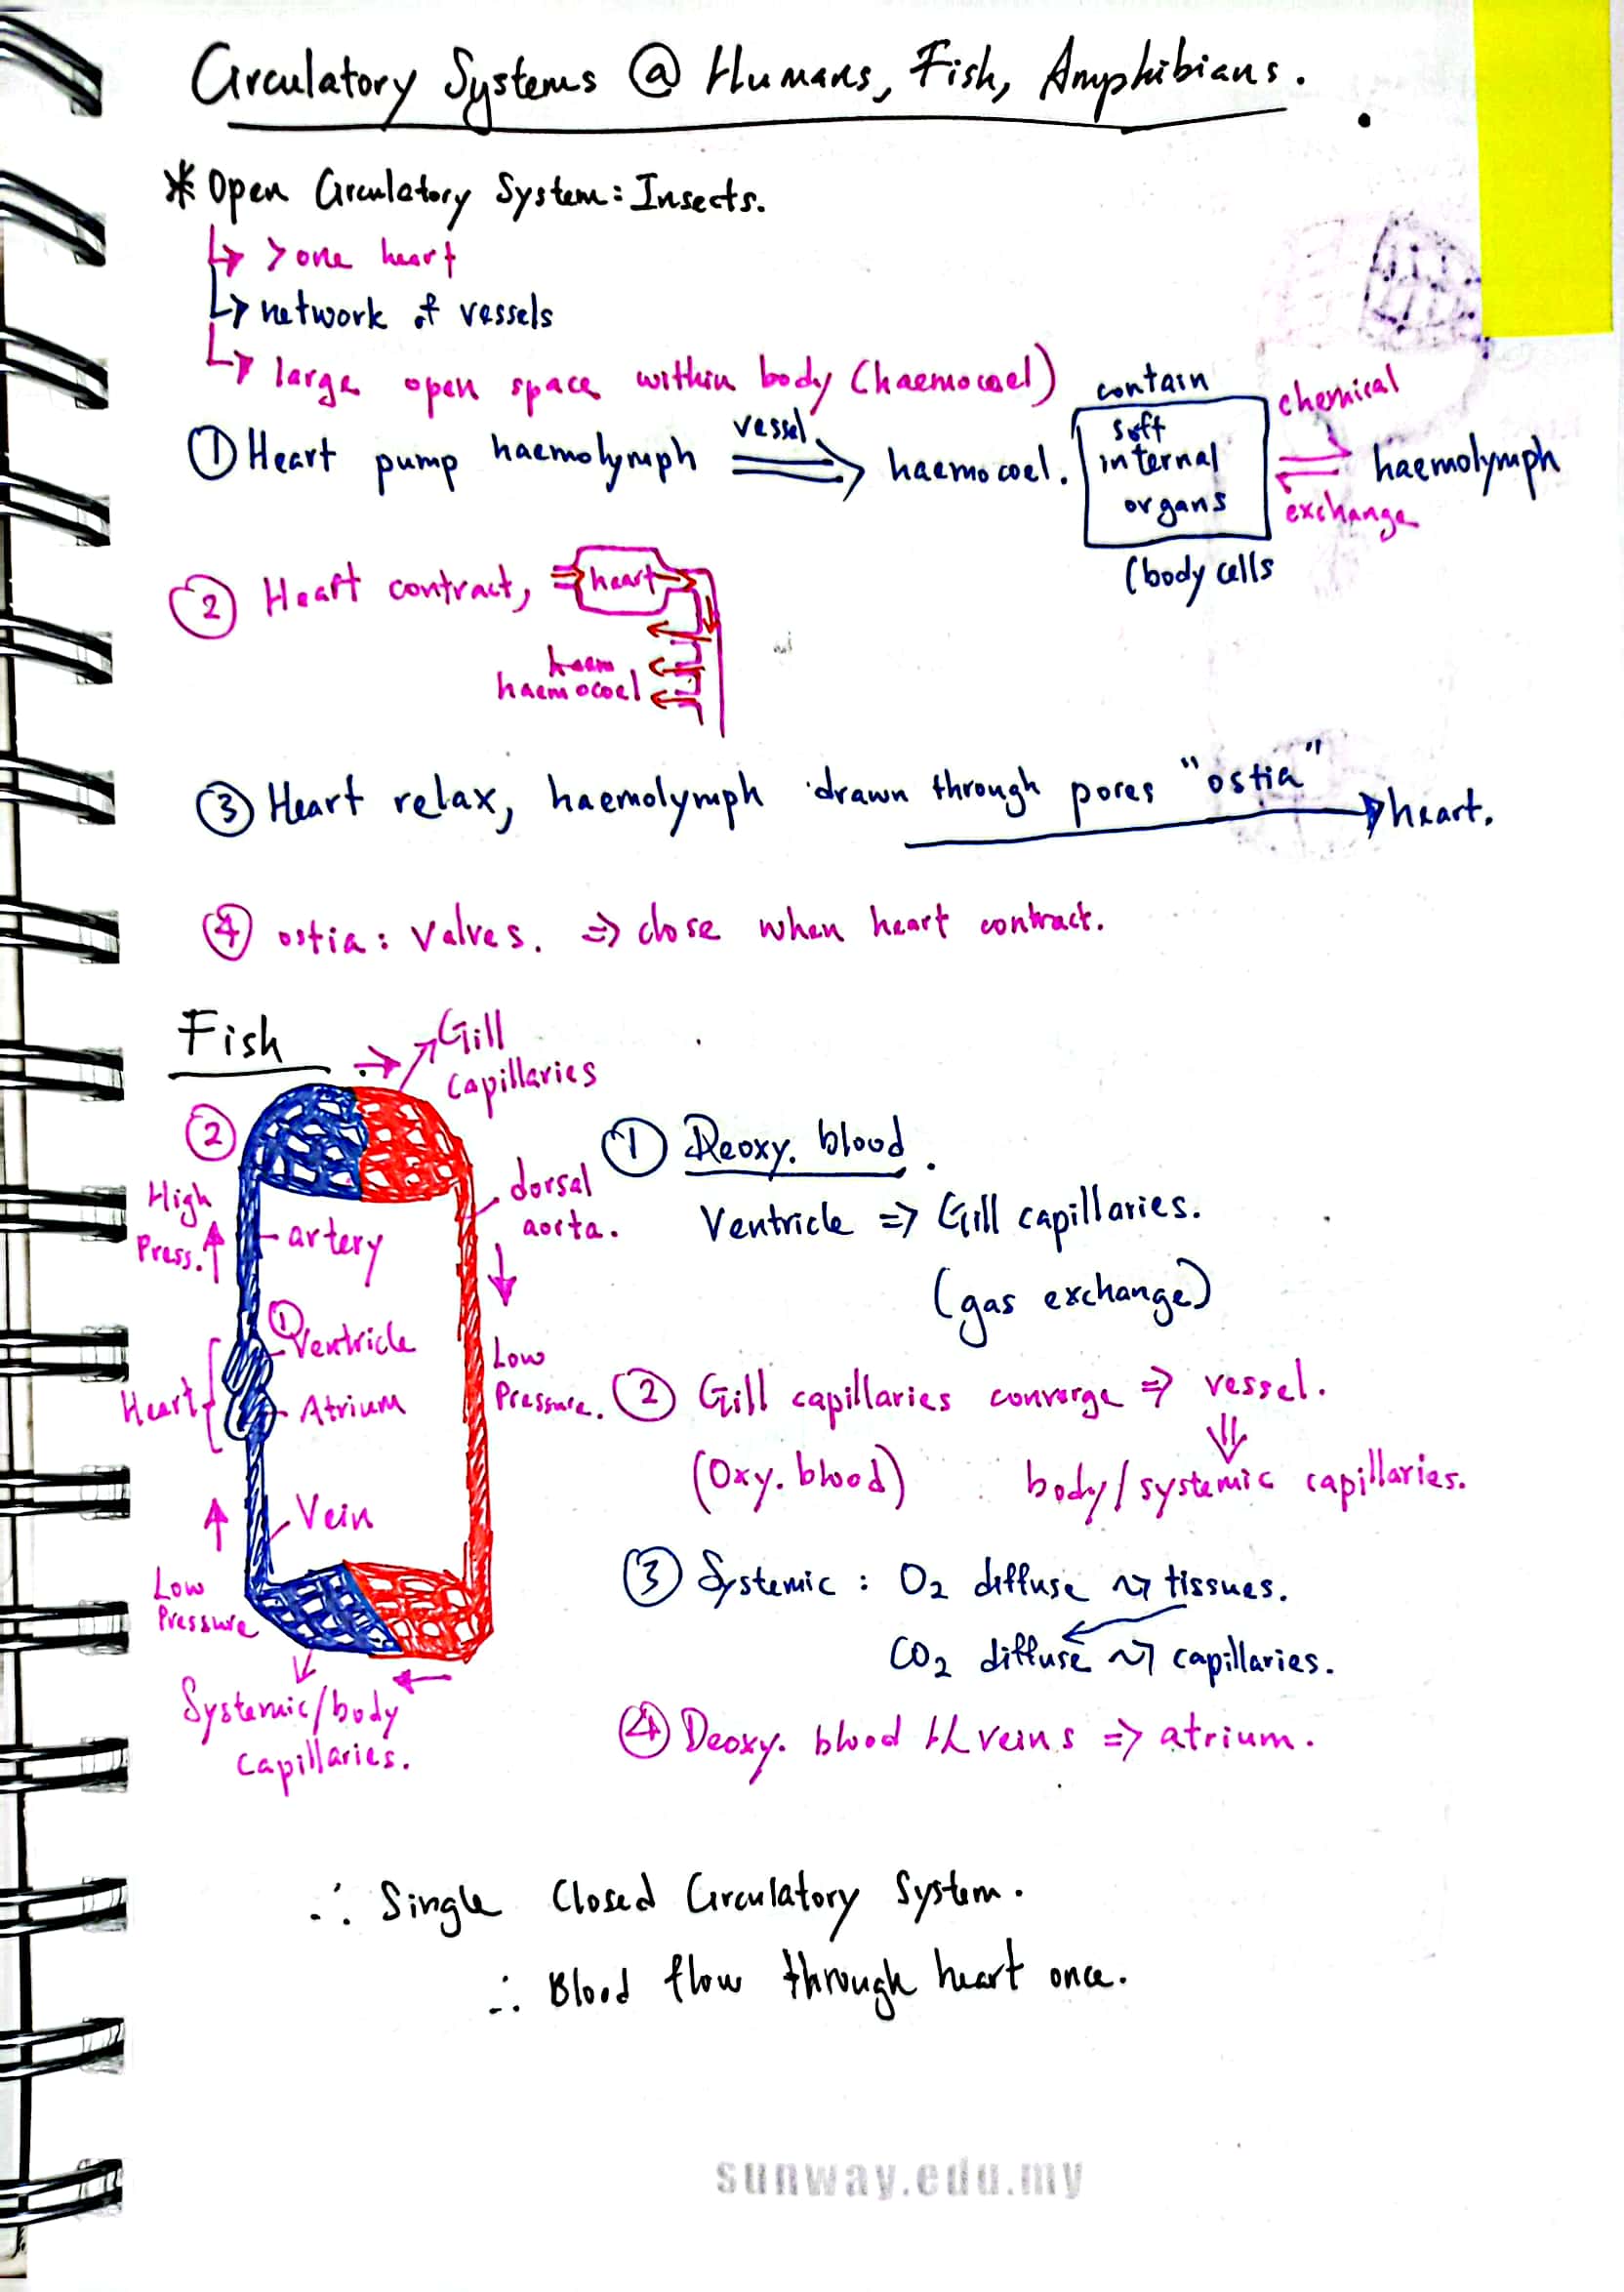 Circulatory Systems @ Humans, Fish, Amphibians.
* Open Circulatory System: Insects.
↳ > one heart
↳ network of vessels
↳ large open space within body (haemocoel)
① Heart pump haemolymph vessel ⇒ haemocoel.
contain
soft
internal
organs
(body cells
chemical
⇌ haemolymph
exchange
② Heart contract,
heart
haem
haemocoel
③ Heart relax, haemolymph drawn through pores "ostia" → heart.
④ ostia: valves. ⇒ close when heart contract.
Fish
→ Gill
capillaries
②
High
Press. ↑
artery
dorsal
aorta.
①
Ventricle
Heart
Atrium
Low
Pressure.
Vein
Low
Pressure
Systemic/body
capillaries.
① Deoxy. blood.
Ventricle ⇒ Gill capillaries.
(gas exchange)
② Gill capillaries converge ⇒ vessel.
(Oxy. blood) ⇓ body/systemic capillaries.
③ Systemic: O2 diffuse ⇝ tissues.
CO2 diffuse ⇝ capillaries.
④ Deoxy. blood veins ⇒ atrium.
∴ Single Closed Circulatory System.
∴ Blood flow through heart once.
sunway.edu.my